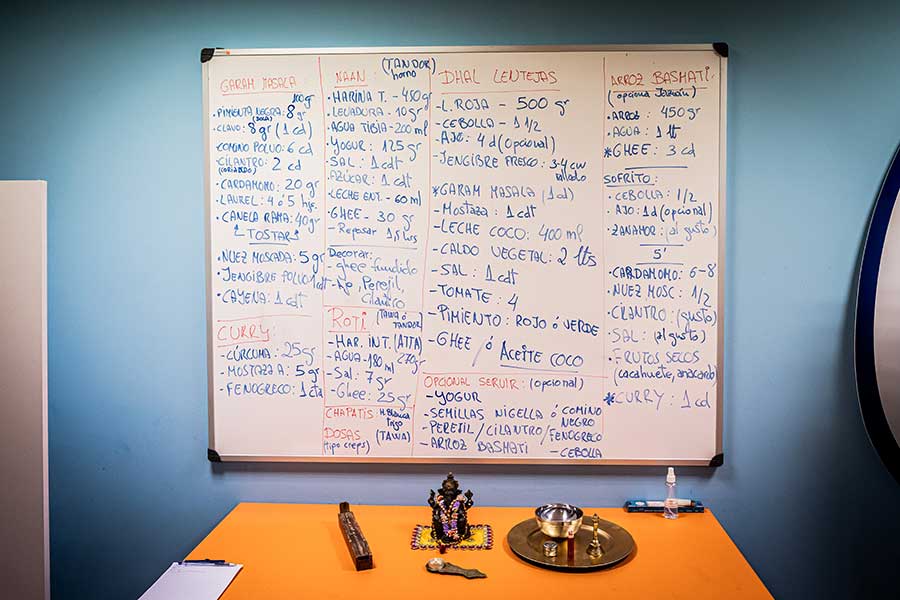 GARAM MASALA
100gr
• PIMIENTA NEGRA: 8gr
(BOLA)
• CLAVO: 8gr (1 cd)
• COMINO POLVO: 6 cd
• CILANTRO: 2 cd
(CORIANDRO)
• CARDAMOMO: 20 gr
• LAUREL: 4 ó 5 hjs.
• CANELA RAMA: 40gr
TOSTAR
• NUEZ MOSCADA: 5gr
• JENGIBRE POLVO: 1cdt
• CAYENA: 1 cdt
CURRY:
- CÚRCUMA: 25gr
- MOSTAZA A: 5gr
- FENOGRECO: 1 cta
NAAN: (TANDOR)
horno
• HARINA T. - 450gr
• LEVADURA - 10gr
• AGUA TIBIA - 200 ml
• YOGUR: 125gr
• SAL: 1 cdt
• AZÚCAR: 1 cdt
• LECHE ENT. - 60 ml
• GHEE - 30 gr
- Reposar 1,5 hrs
Decorar:
- ghee fundido
- Ajo, Perejil,
Cilantro
ROTI (TAWA ó
TANDOR)
- HAR. INT. (ATTA)
270gr
- AGUA - 180 ml
- Sal: 7 gr
- Ghee: 25gr
CHAPATIS: H. Blanca
trigo
DOSAS (TAWA)
(tipo creps)
DHAL LENTEJAS
- L. ROJA - 500 gr
- CEBOLLA - 1 1/2
- AJO: 4 d (opcional)
- JENGIBRE FRESCO: 3-4 cm
rallado
* GARAM MASALA (1 cd)
- MOSTAZA: 1 cdt
- LECHE COCO: 400 ml
- CALDO VEGETAL: 2 lts
- SAL: 1 cdt
- TOMATE: 4
- PIMIENTO: ROJO ó VERDE
- GHEE / ó ACEITE COCO
OPCIONAL SERVIR: (opcional)
- YOGUR
- SEMILLAS NIGELLA ó COMINO
NEGRO
- PEREJIL/CILANTRO/FENOGRECO
- ARROZ BASMATI - CEBOLLA
ARROZ BASMATI:
(opcional Jazmín)
• ARROZ: 450gr
• AGUA: 1 lt
* GHEE: 3 cd
SOFRITO:
• CEBOLLA: 1/2
• AJO: 1d (opcional)
• ZANAHOR: (al gusto)
5'
• CARDAMOMO: 6-8
• NUEZ MOSC: 1/2
• CILANTRO: (gusto)
• SAL: (al gusto)
• FRUTOS SECOS
(cacahuete, anacardo)
* CURRY: 1 cd